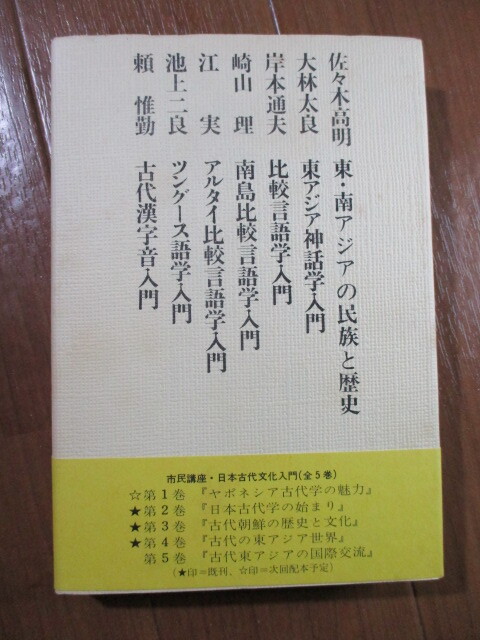 佐々木高明 東・南アジアの民族と歴史
大林太良 東アジア神話学入門
岸本通夫 比較言語学入門
崎山 理 南島比較言語学入門
江 実 アルタイ比較言語学入門
池上二良 ツングース語学入門
頼 惟勤 古代漢字音入門
市民講座・日本古代文化入門(全5巻)
☆第1巻 『ヤポネシア古代学の魅力』
★第2巻 『日本古代学の始まり』
★第3巻 『古代朝鮮の歴史と文化』
★第4巻 『古代の東アジア世界』
第5巻 『古代東アジアの国際交流』
(★印=既刊、☆印=次回配本予定)